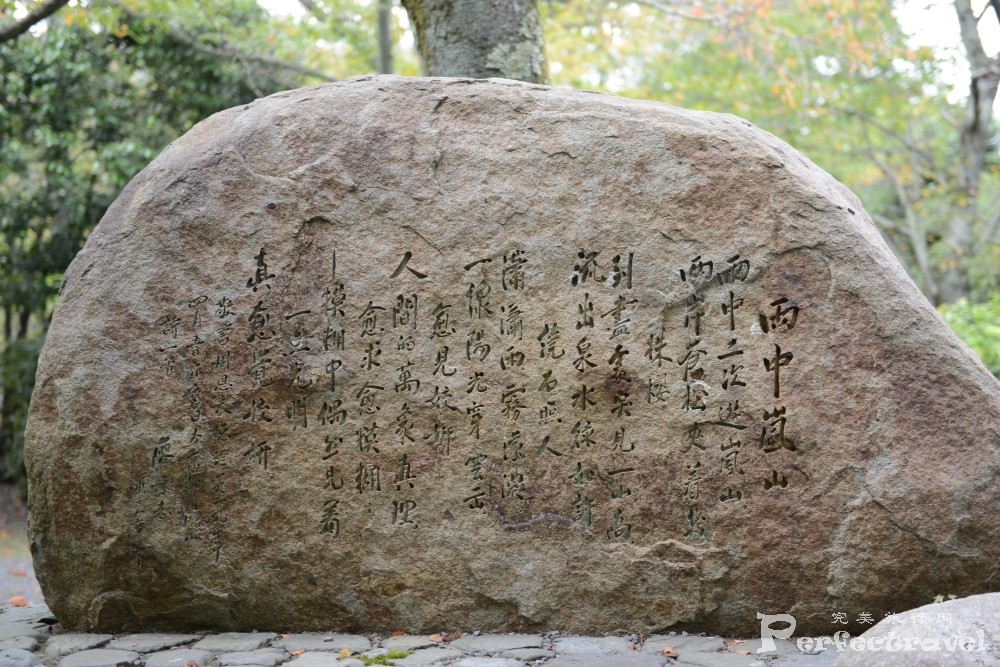 雨中嵐山
雨中二次遊嵐山
兩岸蒼松夾着幾
株櫻
到盡處突見一山高
流出泉水綠如許
繞石照人
瀟瀟雨霧濛濃
一線陽光穿雲出
愈見姣妍
人間的萬象真理
愈求愈模糊
模糊中偶然見着
一點光明
真愈覺姣妍
敬書周恩來總理一九一九年
詩一首
完美旅行網
Perfectravel